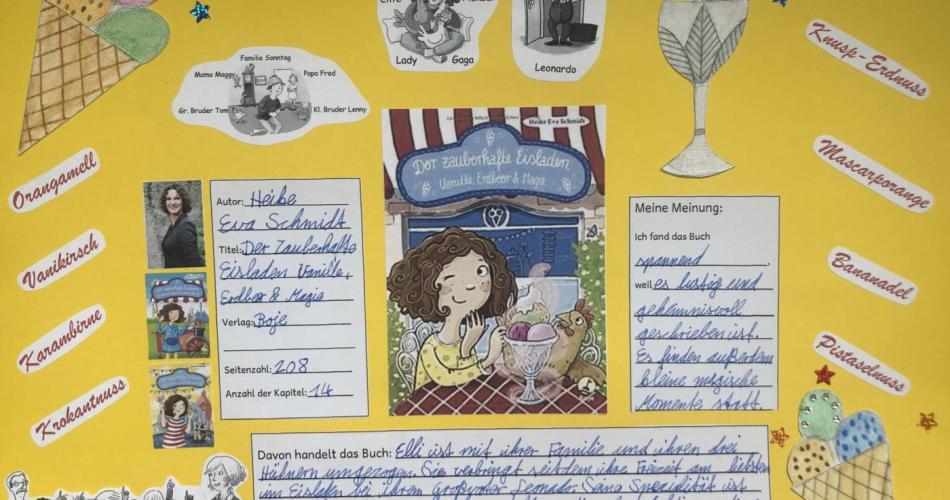 Lady Gaga
Leonardo
Familie Sonntag
Mama Maggy
Papa Fred
Gr. Bruder Tom
Kl. Bruder Lenny
Knusp-Erdnuss
Orangamell
Mascarporange
Vanikirsch
Bananadel
Karambirne
Pistaselnuss
Krokantnuss
Heike Eva Schmidt
Der zauberhafte Eisladen
Vanille, Erdbeer & Magie
Boje
Autor: Heike
Eva Schmidt
Titel: Der Zauberhafte
Eisladen Vanille,
Erdbeer & Magie
Verlag: Boje
Seitenzahl: 208
Anzahl der Kapitel: 14
Meine Meinung:
Ich fand das Buch
spannend.
weil es lustig und
geheimnisvoll
geschrieben ist.
Es finden außerdem
kleine magische
Momente statt.
Davon handelt das Buch: Elli ist mit ihrer Familie und ihren drei
Hühnern umgezogen. Sie verbringt seitdem ihre Freizeit am liebsten
im Eisladen bei ihrem Großvater Leonardo. Seine Spezialität ist